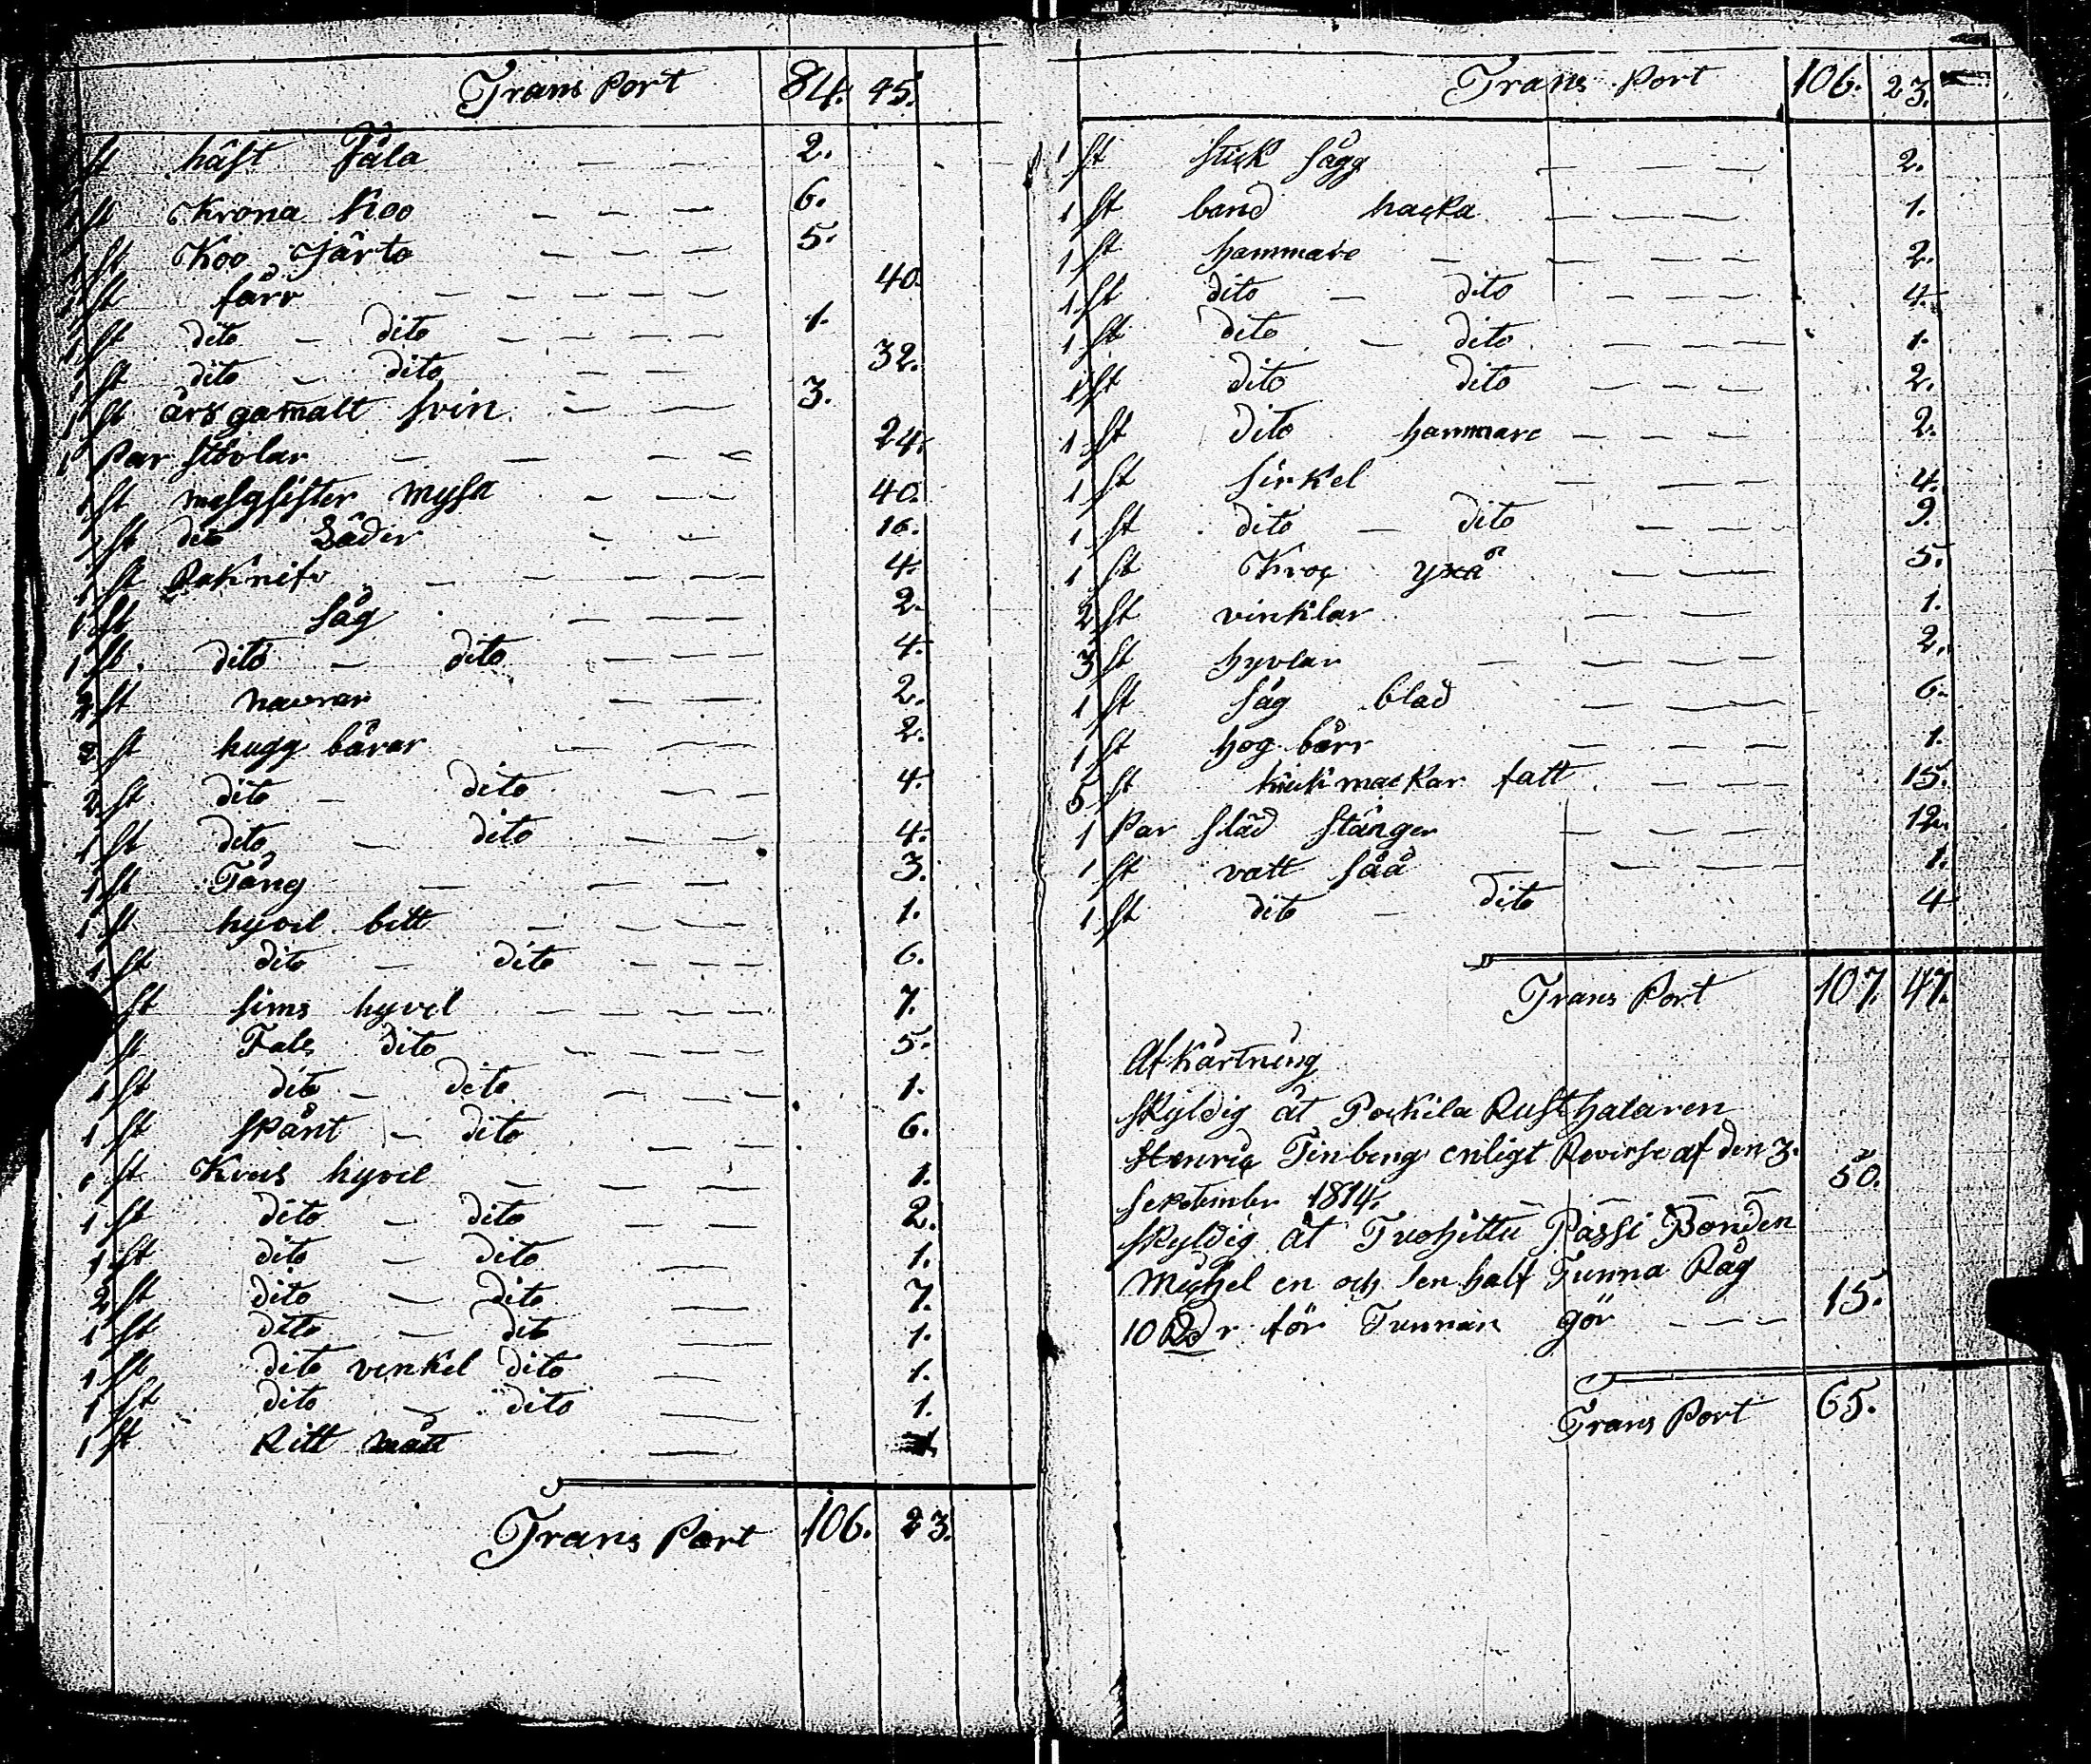 Trans Port 84. 45.
st häst Fåla — — — 2.
1 st Krona Koo — — — 6.
1 st Koo Järto — — — 5.
1 st fårr — — — — — 40.
1 st dito — dito — — — — 1.
1 st dito — dito — — 32.
1 st års gamalt svin — — 3.
1 Par stövlar — — — — 24.
1 st mysa — — — 40.
1 st dito — — 16.
1 st Raknifv — — — — — 4.
1 st såg — — — 2.
1 st. dito — dito — — — 4.
2 st navrar — — 2.
2 st hugg bårar — — — 2.
2 st dito — dito — — 4.
1 st dito — dito — — — 4.
1 st Tång — — — 3.
1 st hyvel bett — — — — 1.
1 st dito — dito — — — 6.
st sims hyvel — — — — 7.
st Fals dito — — — — 5.
1 st dito — dito — — — 1.
1 st spånt — dito — — 6.
1 st hyvel — — — — 1.
1 st dito — dito — — — 2.
1 st dito — dito — 1.
2 st dito — dito — 7.
1 st dito — dito — 1.
1 st dito venkel dito — 1.
1 st dito — dito — 1.
1 st Ritt mått —
Trans Port 106. 23.
Trans Port 106. 23.
1 st stick sågg — — — 2.
1 st band hacka — — — — 1.
1 st hammare — — — — 2.
1 st dito — dito — — — 4.
1 st dito — dito — — — 1.
1 st dito dito — — — — 2.
1 st dito hammare — — — — 2.
1 st sirkel — — — 4.
1 st dito — dito — — — 9.
1 st Kroc yxa — — — 5.
2 st vinklar — — 1.
3 st hyvlar — — — — 2.
1 st såg blad — — — 6.
1 st hog bårr — — — — 1.
5 st fatt — — — 15.
1 Par släd stänger — — — 12.
1 st vatt såå — — — — 1.
1 st dito — dito 4
Trans Port 107. 47.
Afkårtning
skyldig åt Pockila Rusthalaren
Henric Tinberg enligt Reverse af den 3.
September 1814. — — — — 50.
skyldig åt Tuohittu Passi Bonden
Michel en och en half Tunna Råg
10 Rdr för Tunnan gör — — — 15.
Trans Port 65.